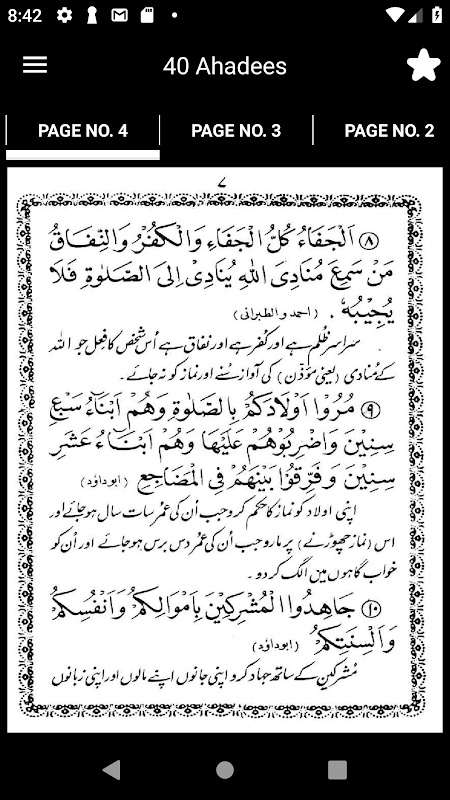 8:42
40 Ahadees
PAGE NO. 4
PAGE NO. 3
PAGE NO. 2
٧
٨ اَلْجَفَاءُ كُلُّ الْجَفَاءِ وَالْكُفْرُ وَالنِّفَاقُ
مَنْ سَمِعَ مُنَادِىَ اللهِ يُنَادِىْ اِلىَ الصَّلٰوةِ فَلَا
يُجِيْبُهٗ . (احمد و الطبرانی)
سراسر ظُلم ہے اور کُفر ہے اور نفاق ہے اُس شخص کا فعل جو اللہ
کے مُنادی (یعنی مؤذّن) کی آواز سُنے اور نماز کو نہ جائے۔
٩ مُرُوْا اَوْلَادَكُمْ بِالصَّلٰوةِ وَهُمْ اَبْنَآءُ سَبْعِ
سِنِيْنَ وَاضْرِبُوْهُمْ عَلَيْهَا وَهُمْ اَبْنَآءُ عَشْرِ
سِنِيْنَ وَفَرِّقُوْا بَيْنَهُمْ فِى الْمَضَاجِعِ (ابوداؤد)
اپنی اولاد کو نماز کا حکم کرو جب اُن کی عمر سات سال ہو جائے اور
اس (نماز چھوڑنے) پر مارو جب اُن کی عمر دس برس ہو جائے اور اُن کو
خواب گاہوں میں الگ کر دو۔
١٠ جَاهِدُوا الْمُشْرِكِيْنَ بِاَمْوَالِكُمْ وَاَنْفُسِكُمْ
وَاَلْسِنَتِكُمْ (ابوداؤد)
مُشرکین کے ساتھ جہاد کرو اپنی جانوں اپنے مالوں اور اپنی زبانوں